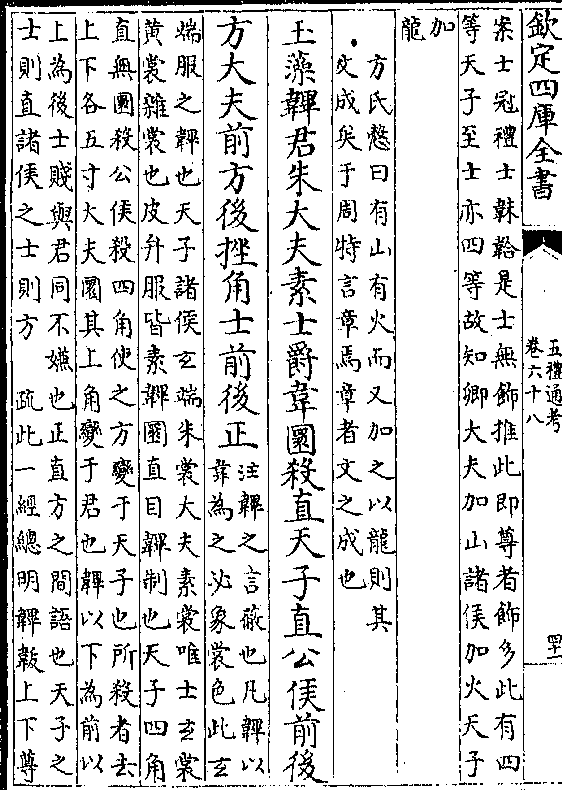 欽定四庫全書
五禮通考
卷六十八
四十一
案士冠禮士韎韐是士無飾推此即尊者飾多此有四
等天子至士亦四等故知卿大夫加山諸侯加火天子
加
龍
方氏慤曰有山有火而又加之以龍則其
文成矣于周特言章焉章者文之成也
玉藻韠君朱大夫素士爵韋圜殺直天子直公侯前後
方大夫前方後挫角士前後正
注韠之言蔽也凡韠以
韋為之必象裳色此𤣥
端服之韠也天子諸侯𤣥端朱裳大夫素裳唯士𤣥裳
黄裳雜裳也皮弁服皆素韠圜直目韠制也天子四角
直無圜殺公侯殺四角使之方變于天子也所殺者去
上下各五寸大夫圜其上角變于君也韠以下為前以
上為後士賤與君同不嫌也正直方之間語也天子之
士則直諸侯之士則方 疏此一經總明韠韍上下尊